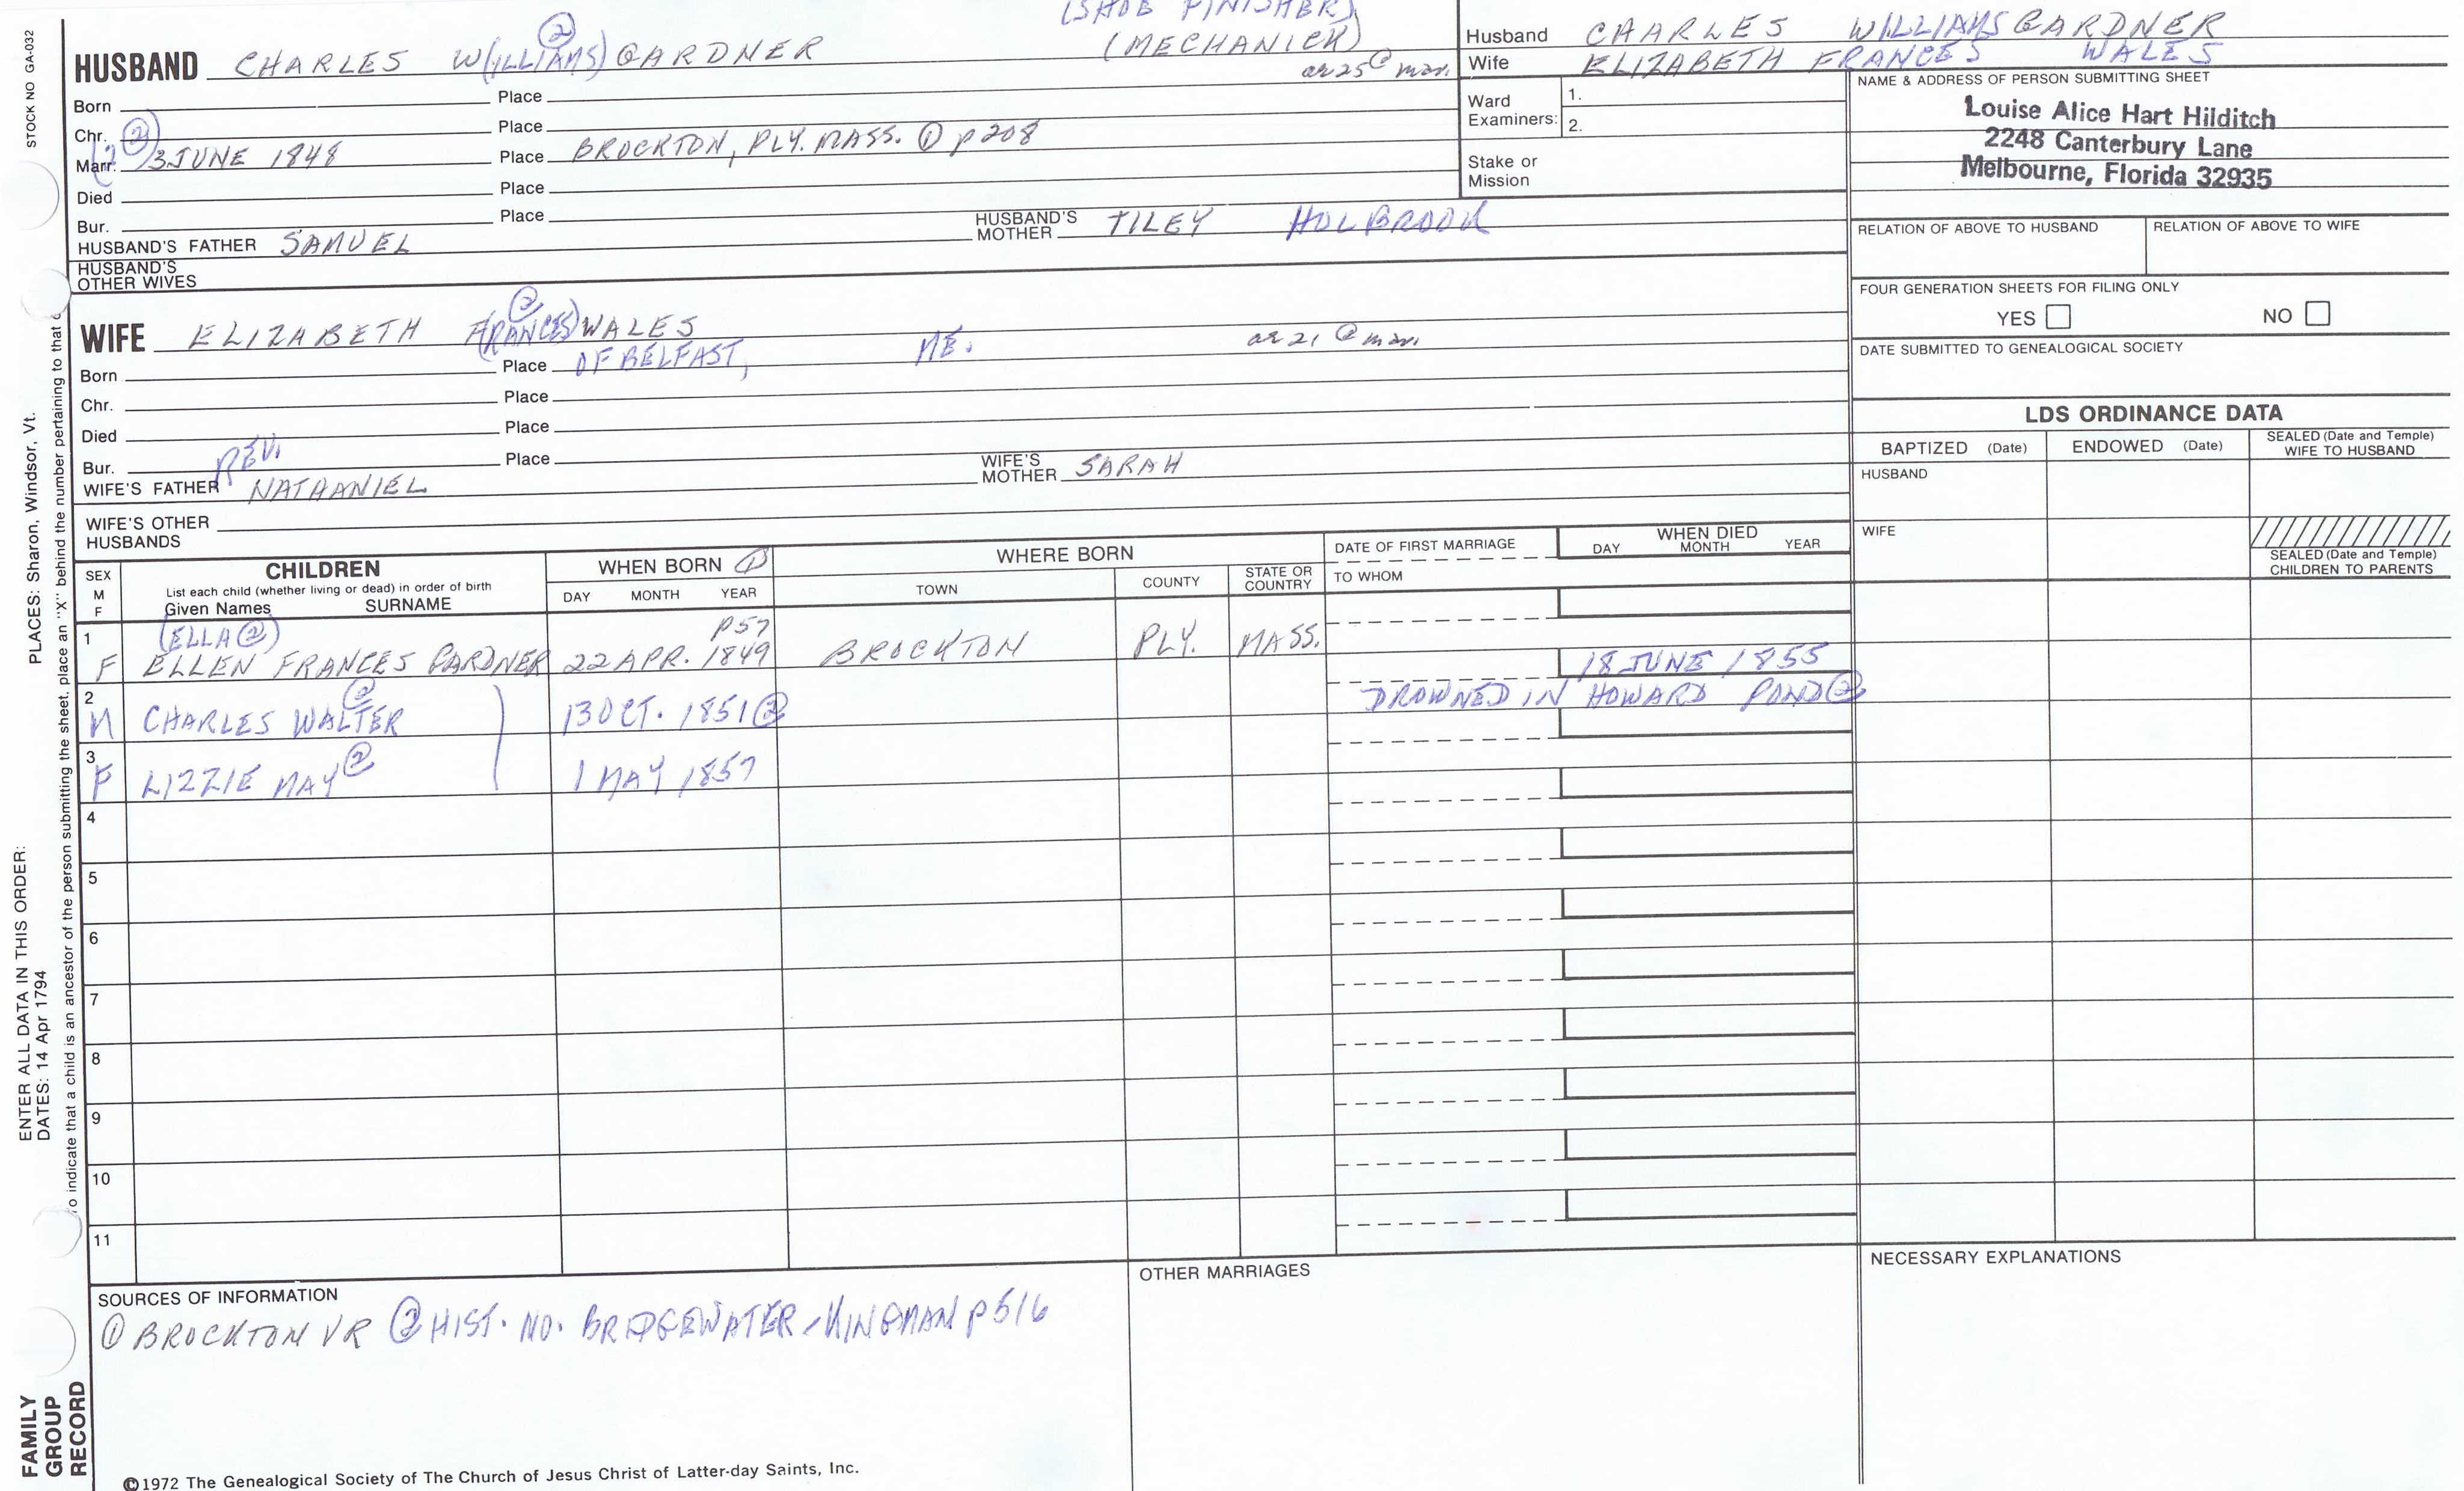 STOCK NO GA-032
PLACES: Sharon, Windsor, Vt.
ENTER ALL DATA IN THIS ORDER:
DATES: 14 Apr 1794
To indicate that a child is an ancestor of the person submitting the sheet, place an "X" behind the number pertaining to that c
FAMILY
GROUP
RECORD
(SHOE FINISHER)
(MECHANICK)
HUSBAND CHARLES W(ILLIAMS) ② GARDNER
ae 25 @ mar.
Born Place
Chr. Place
Marr. (② 3 JUNE 1848 Place BROCKTON, PLY. MASS. ① p 208
Died Place
Bur. Place
HUSBAND'S FATHER SAMUEL HUSBAND'S MOTHER TILEY HOLBROOK
HUSBAND'S
OTHER WIVES
Husband CHARLES WILLIAMS GARDNER
Wife ELIZABETH FRANCES WALES
Ward
Examiners: 1.
2.
Stake or
Mission
NAME & ADDRESS OF PERSON SUBMITTING SHEET
Louise Alice Hart Hilditch
2248 Canterbury Lane
Melbourne, Florida 32935
RELATION OF ABOVE TO HUSBAND RELATION OF ABOVE TO WIFE
FOUR GENERATION SHEETS FOR FILING ONLY
YES NO
DATE SUBMITTED TO GENEALOGICAL SOCIETY
WIFE ELIZABETH F(RANCES) ② WALES
ae 21 @ mar.
Born Place OF BELFAST, ME.
Chr. Place
Died Place
Bur. Place
WIFE'S FATHER REV. NATHANIEL WIFE'S MOTHER SARAH
WIFE'S OTHER
HUSBANDS
LDS ORDINANCE DATA
BAPTIZED (Date) ENDOWED (Date) SEALED (Date and Temple) WIFE TO HUSBAND
HUSBAND
WIFE
SEALED (Date and Temple) CHILDREN TO PARENTS
SEX
M
F
CHILDREN
List each child (whether living or dead) in order of birth
Given Names SURNAME
WHEN BORN ①
DAY MONTH YEAR
WHERE BORN
TOWN COUNTY STATE OR COUNTRY
DATE OF FIRST MARRIAGE
TO WHOM
WHEN DIED
DAY MONTH YEAR
1 (ELLA ②) p57
F ELLEN FRANCES GARDNER 22 APR. 1849 BROCKTON PLY. MASS.
18 JUNE 1855
2 ② DROWNED IN HOWARD POND ②
M CHARLES WALTER 13 OCT. 1851 ②
3
F LIZZIE MAY ② 1 MAY 1857
4
5
6
7
8
9
10
11
SOURCES OF INFORMATION
① BROCKTON VR ② HIST. NO. BRIDGEWATER - KINGMAN p 516
OTHER MARRIAGES
NECESSARY EXPLANATIONS
©1972 The Genealogical Society of The Church of Jesus Christ of Latter-day Saints, Inc.